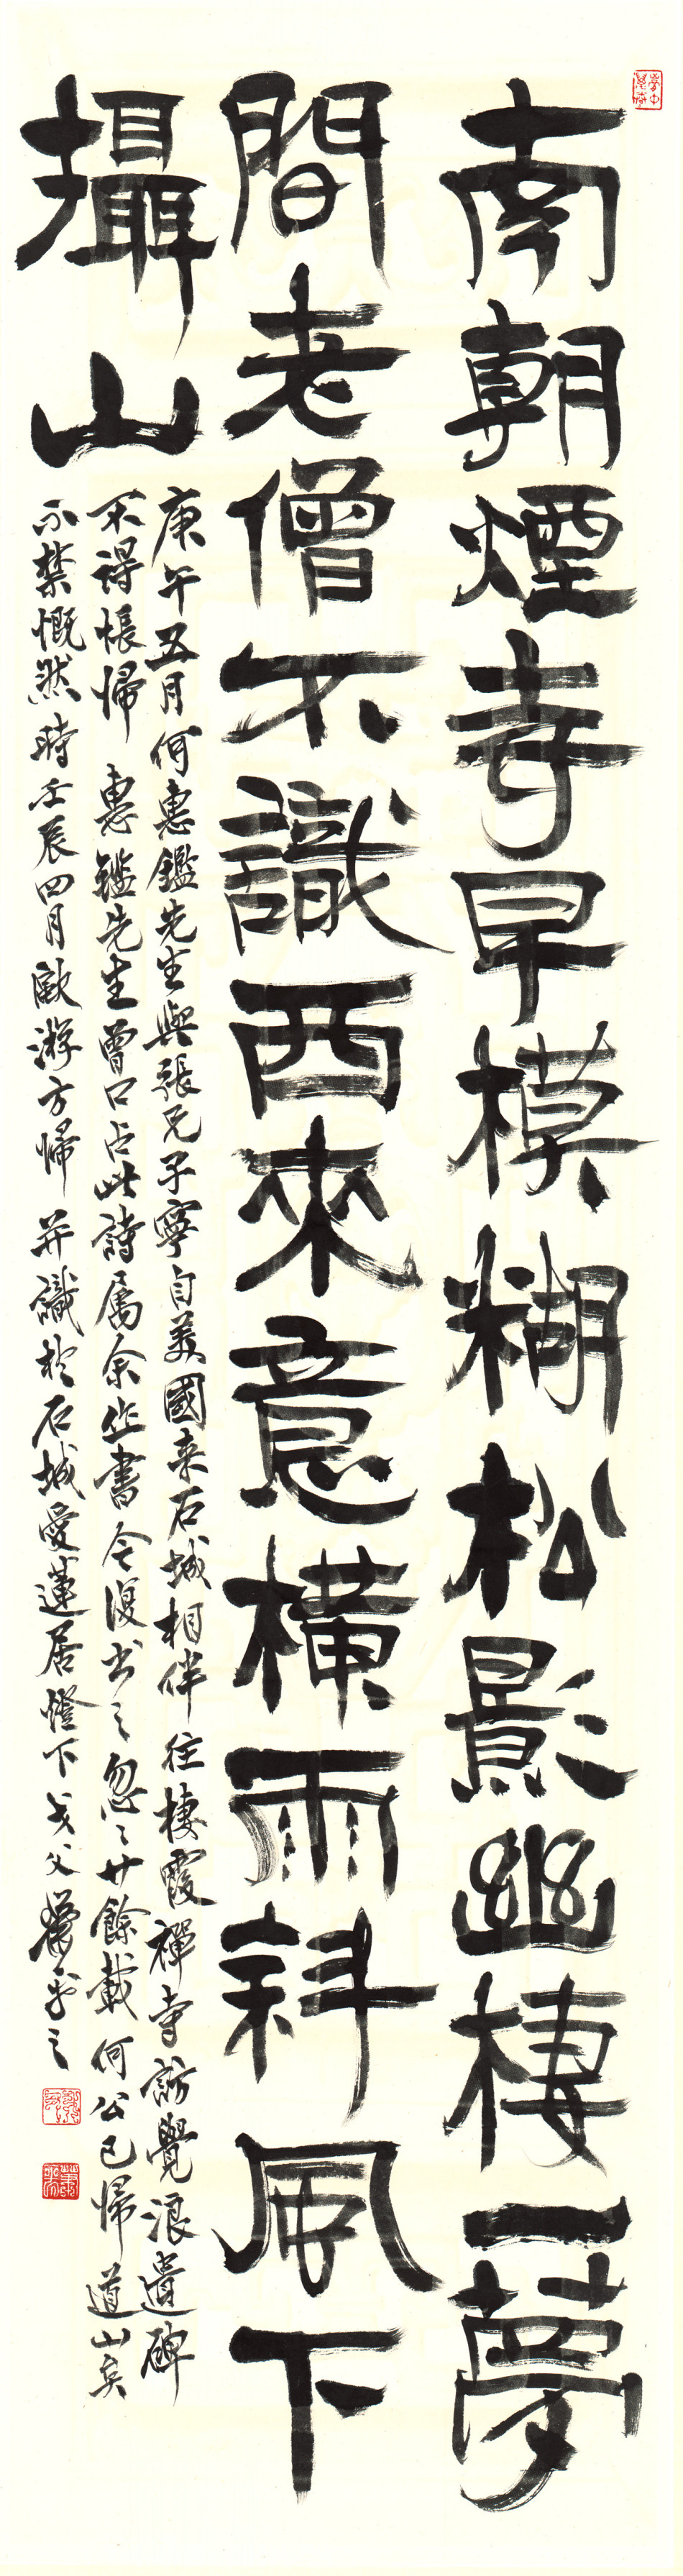 南朝煙寺早模糊松影幽棲一夢
間老僧不識西來意橫雨斜風下
攝山
庚午五月何惠鑑先生與張兄子寧自美國来石城相伴往棲霞禪寺訪覺浪遺碑
不得悵歸 惠鑑先生曾口占此詩属余作書今復书之忽々廿餘載何公已歸道山矣
不禁慨然時壬辰四月歐游方歸并識於石城愛蓮居燈下戈父